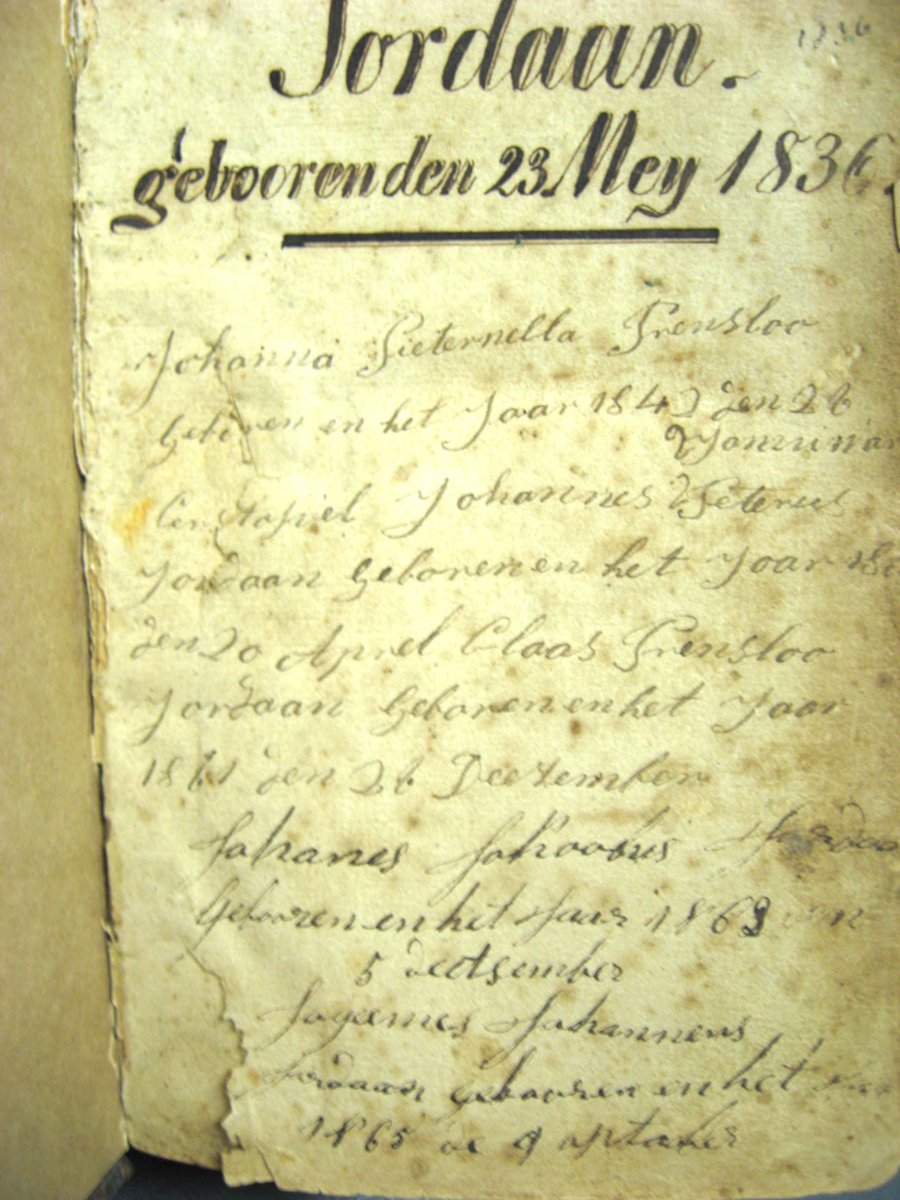 1836
Jordaan.
gebooren den 23 Mey 1836.
Johanna Pieternella Prensloo
Geboren en het Jaar 1842 den 26
Janeuwar
Johannes Peterus
Jordaan Geboren en het Jaar
den 20 Aprel Claas Prensloo
Jordaan Geboren en het Jaar
1861 den 26 Deetember
Johanes Jakoobus
Gebooren en het Jaar 1863
5 deetsember
Johannens
Jordaan gebooren en het
1865 de 9 optaber